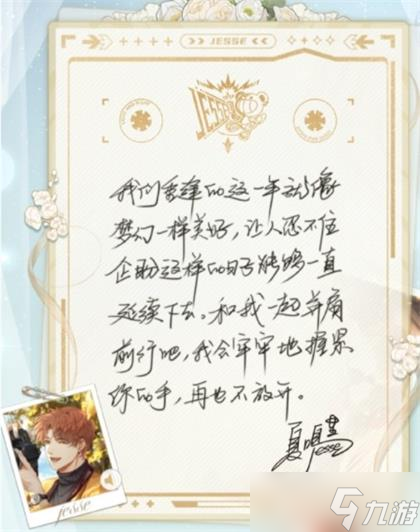 JESSE
JESSE
我们重逢的这一年就像
梦幻一样美好,让人忍不住
企盼这样的日子能够一直
延续下去。和我一起并肩
前行吧,我会牢牢地握紧
你的手,再也不放开。
夏鸣星
Jesse
Jesse
九游